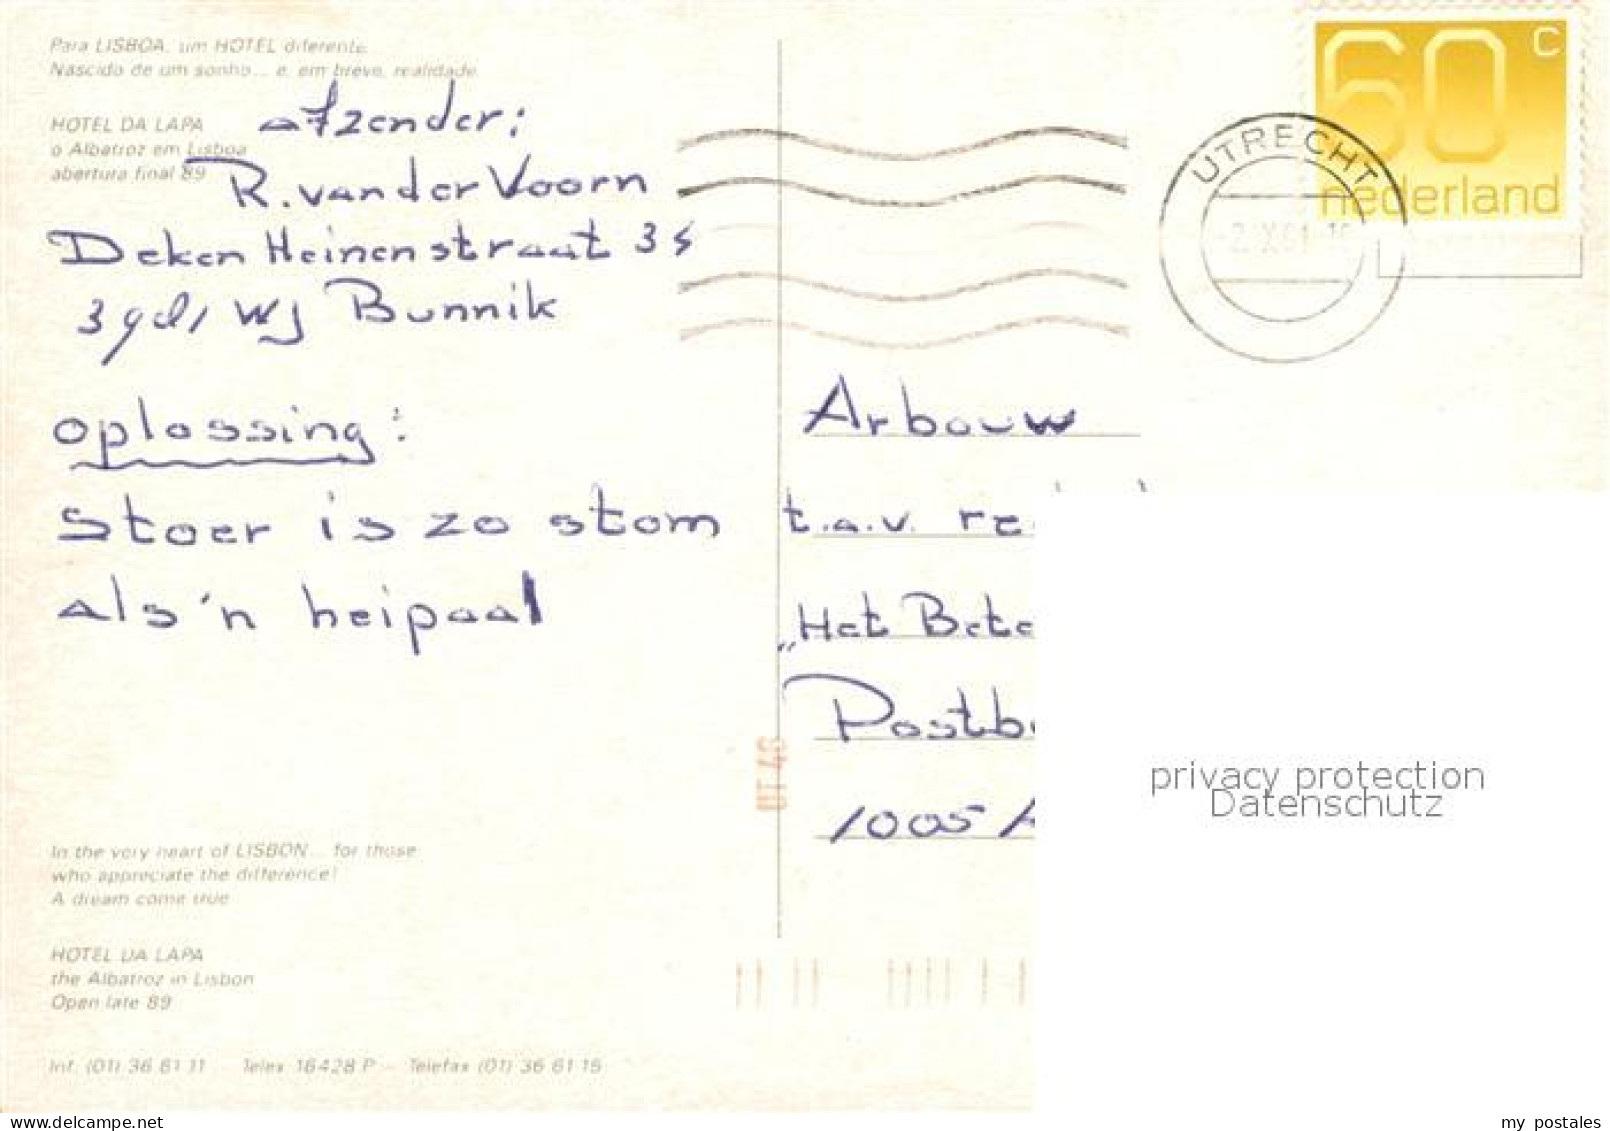 Para LISBOA, um HOTEL diferente.
Nascido de um sonho... e, em breve, realidade.
HOTEL DA LAPA
o Albatroz em Lisboa
abertura final 89
afzender:
R. van der Voorn
Deken Heinenstraat 35
WJ Bunnik
oplossing:
Stoer is zo stom
als 'n heipaal
60 c
nederland
UTRECHT
Arbouw
t.a.v. re
"Het Bete
Postb
1005 A
UT 48
privacy protection
Datenschutz
In the very heart of LISBON... for those
who appreciate the difference!
A dream come true
HOTEL DA LAPA
the Albatroz in Lisbon
Open late 89
Inf. (01) 36 61 11 Telex 16428 P - Telefax (01) 36 61 15
my postales
www.delcampe.net